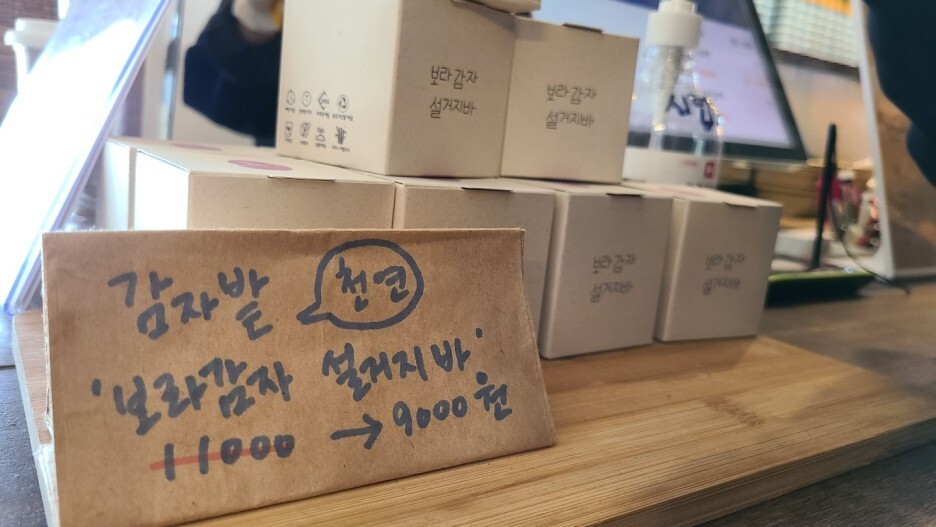 보라감자
설거지바
보라감자
설거지바
보라감자
설거지바
보라감자
설거지바
감자밭 천연
'보라감자 설거지바'
11000 → 9000원